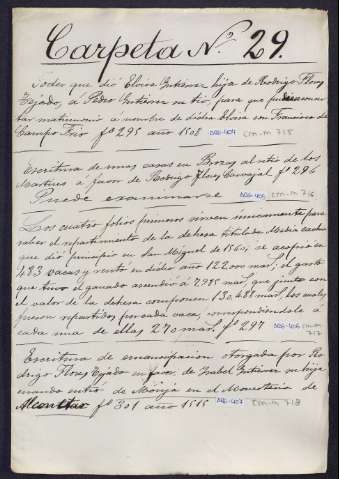 Carpeta Nº 29.
Poder que dió Elvira Gutierrez hija de Rodrigo Flores
Tejado, á Pedro Gutierrez su tio, para que pudiese
tar matrimonio á nombre de dicha Elvira con Francisco de
Campo Frio fº 295 año 1508 DOC-404 cm-m 715
Escritura de unas casas en Brozas al sitio de los
Martires á favor de Rodrigo Flores Carvajal fº 296
Puede examinarse DOC-405 cm-m 716
Los cuatro folios primeros sirven unicamente para
saber el repartimento de la dehesa titulada Media
que dió principio en San Miguel de 1564; se acopió en
483 vacas y rentó en dicho año 122000 mars; el gasto
que tuvo el ganado ascendió á 7985 mars, que juntos con
el valor de la dehesa componen 130.485 mars, los cuales
fueron repartidos por cada vaca, correspondiendole á
cada una de ellas 270 mars, fº 297 DOC-406 cm-m 717
Escritura de emancipacion otorgada por Ro
drigo Flores Tejado en favor de Isabel Gutierrez su hija
cuando entró de Monja en el Monasterio de
fº 301 año 1515 DOC-407 cm-m 718